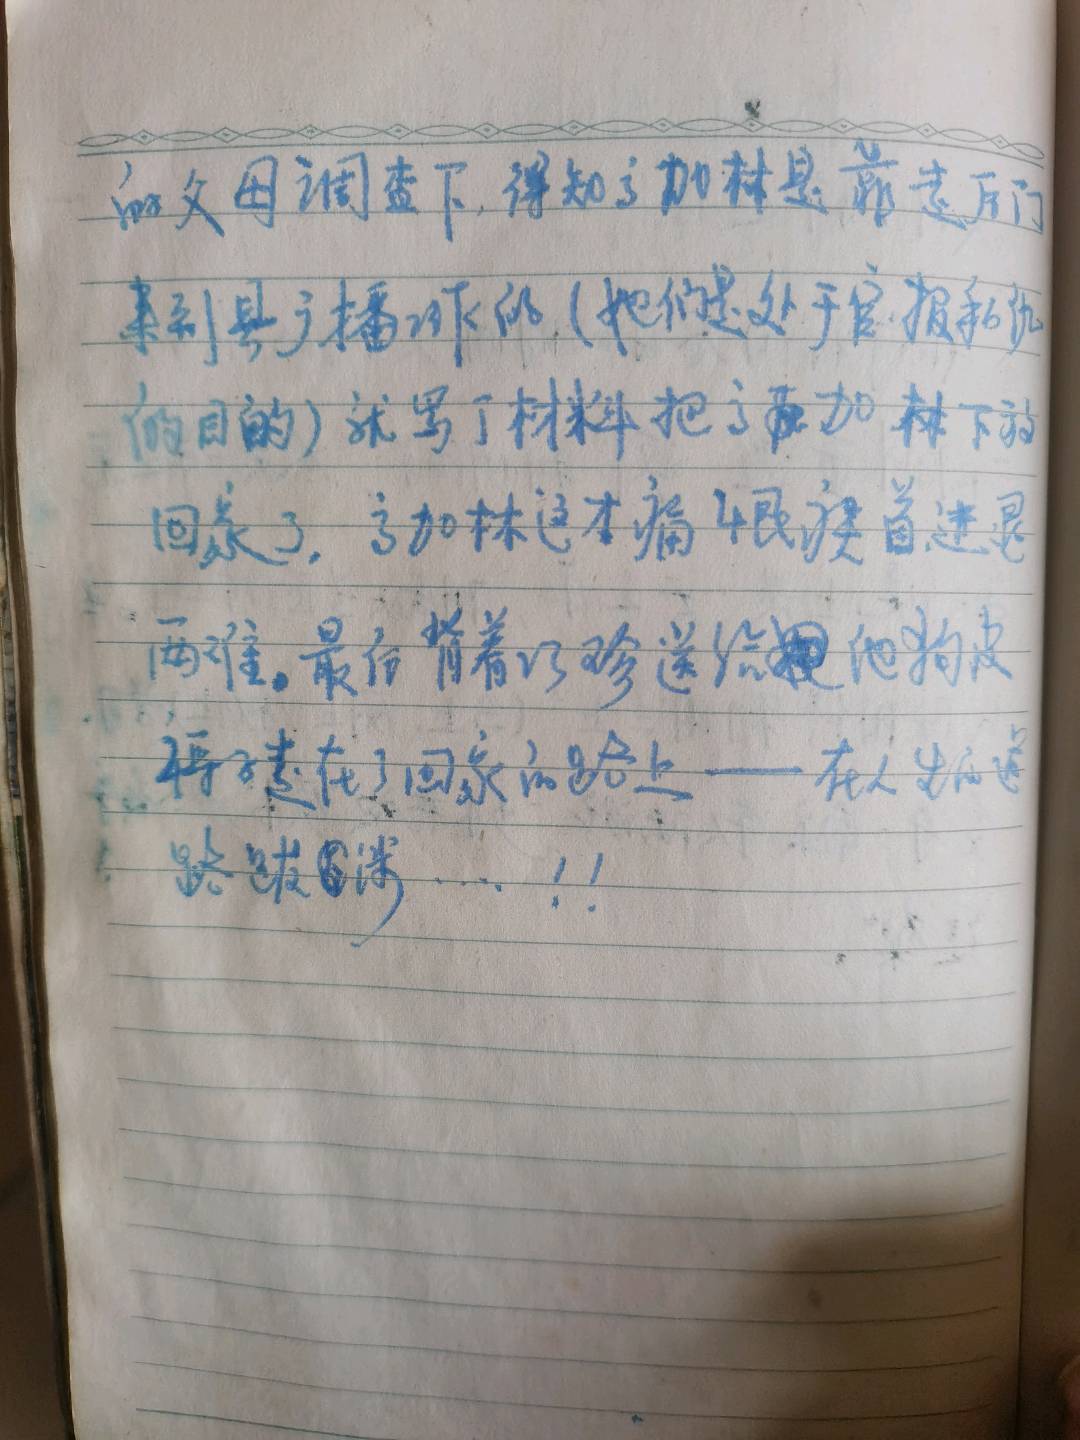 的父母调查下,得知高加林是靠走后门
来到县广播工作的(她们是处于官报私仇
的目的)就写了材料把高加林下放
回家了。高加林这本痛恨疾首进退
两难。最后背着巧珍送给他狗皮
褥子走在了回家的路上——在人生的道
路跋涉……!!